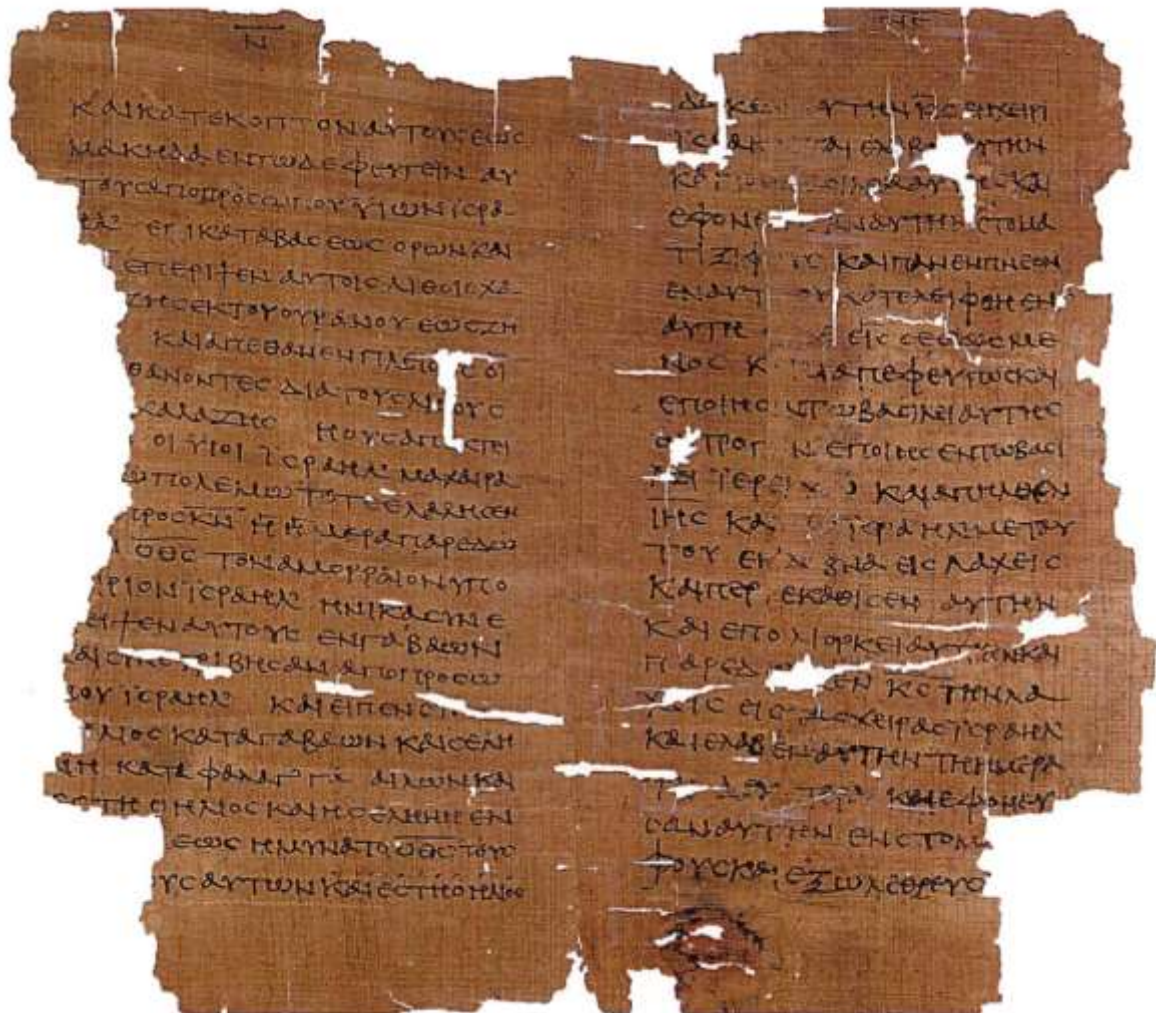 Ν
ΚΑΙΚΑΤΕΚΟΠΤΟΝΑΥΤΟΥΣΕΩΣ
ΜΑΚΗΔΑΕΝΤΩΔΕΦΕΥΓΕΙΝΑΥ
ΤΟΥΣΑΠΟΠΡΟΣΩΠΟΥΥΙΩΝΙΣΡΑ
ΕΠΙΚΑΤΑΒΑΣΕΩΣΟΡΩΝΚΑΙ
ΕΠΕΡΙΨΕΝΑΥΤΟΙΣΛΙΘΟΙΣΧΑ
ΖΗΣΕΚΤΟΥΟΥΡΑΝΟΥΕΩΣΖΗ
ΚΑΙΑΠΕΘΑΝΕΝΠΛΕΙΟΥΣΟΙ
ΘΑΝΟΝΤΕΣΔΙΑΤΟΥΣΛΙΘΟΥΣ
ΧΑΛΑΖΗΣ ΗΟΥΣΑΠΕΚΤΕΙ
ΟΙΥΙΟΙΙΣΡΑΗΛ ΜΑΧΑΙΡΑ
ΩΠΟΛΕΜΩΤΟΤΕΕΛΑΛΗΣΕΝ
ΠΡΟΣΚΝ ΗΗΜΕΡΑΠΑΡΕΔΩ
ΟΘΣ ΤΟΝΑΜΟΡΡΑΙΟΝΥΠΟ
ΡΙΟΝΙΣΡΑΗΛ ΗΝΙΚΑΣΥΝΕ
ΕΙΨΕΝΑΥΤΟΥΣ ΕΝΓΑΒΑΩΝ
ΑΙΣΥΝΕΤΡΙΒΗΣΑΝΑΠΟΠΡΟΣΩ
ΠΟΥΙΣΡΑΗΛ ΚΑΙΕΙΠΕΝ
ΛΙΟΣΚΑΤΑΓΑΒΑΩΝΚΑΙΣΕΛΗ
ΝΗ ΚΑΤΑΦΑΛΑΓΓΑ ΑΙΛΩΝΚΑΙ
ΕΣΤΗΟΗΛΙΟΣΚΑΙΗΣΕΛΗΝΗΕΝ
ΕΩΣΗΜΥΝΑΤΟΟΘΣΤΟΥΣ
ΟΥΣΑΥΤΩΝΚΑΙΕΣΤΗΟΗΛΙΟ
ΔΩΚΕ ΑΥΤΗΝΚΣΕΝΧΕΙΡΙ
ΙΣΡΑΗ ΚΑΙΕΛΑΒΟ ΑΥΤΗΝ
ΕΦΟΝΕΥ ΑΝΑΥΤΗΝΕΣΤΟΜΑ
ΤΙΞΙΦΟΥΣ ΚΑΙΠΑΝΕΝΠΝΕΟΝ
ΕΝΑΥΤ ΟΥΚΑΤΕΛΕΙΦΘΗΕΝ
ΑΥΤΗ ΕΙΣΣΕΣΩΣΜΕ
ΝΟΣ Κ ΔΙΑΠΕΦΕΥΓΩΣΚΑΙ
ΕΠΟΙΗΣ ΤΩΒΑΣΙΛΕΙΑΥΤΗΣ
ΟΝΤΡΟΠ ΝΕΠΟΙΗΣΕΝΤΩΒΑΣΙ
ΛΕΙΙΕΡΕΙΧΩ ΚΑΙΑΠΗΛΘΕΝ
ΙΗΣ ΚΑ ΙΣΡΑΗΛΜΕΤΟΥ
ΤΟΥ ΕΚΛΕΒΝΑΕΙΣΛΑΧΕΙΣ
ΚΑΙΠΕΡ ΕΚΑΘΙΣΕΝ ΑΥΤΗΝ
ΚΑΙΕΠΟΛΙΟΡΚΕΙΑΥΤΗΝΚΑΙ
ΠΑΡΕΔ ΚΕΝ ΚΣΤΗΝΛΑ
ΧΕΙΣ ΕΙΣΤΑΣΧΕΙΡΑΣΙΣΡΑΗΛ
ΚΑΙΕΛΑΒΕΝΑΥΤΗΝΤΗΗΜΕΡΑ
ΔΕΥ ΤΕΡΑ ΚΑΙΕΦΟΝΕΥ
ΣΑΝΑΥΤΗΝ ΕΝΣΤΟΜ
ΦΟΥΣΚΑΙΕΞΩΛΕΘΡΕΥΣ